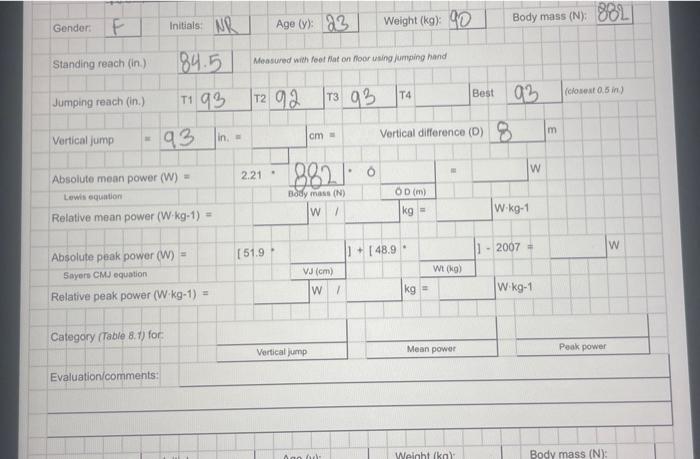 Gender: F Initials: NR Age (y): 23 Weight (kg): 90 Body mass (N): 882
Standing reach (in.) 84.5 Measured with feet flat on floor using jumping hand
Jumping reach (in.) T1 93 T2 92 T3 93 T4 Best 93 (closest 0.5 in.)
Vertical jump = 93 in. = cm = Vertical difference (D) 8 m
Absolute mean power (W) = 2.21 * 882 * √ = W
Lewis equation Body mass (N) √D (m)
Relative mean power (W·kg-1) = W / kg = W·kg-1
Absolute peak power (W) = [ 51.9 * ] + [ 48.9 * ] - 2007 = W
Sayers CMJ equation VJ (cm) Wt (kg)
Relative peak power (W·kg-1) = W / kg = W·kg-1
Category (Table 8.1) for:
Vertical jump Mean power Peak power
Evaluation/comments:
Age (y): Weight (kg): Body mass (N):